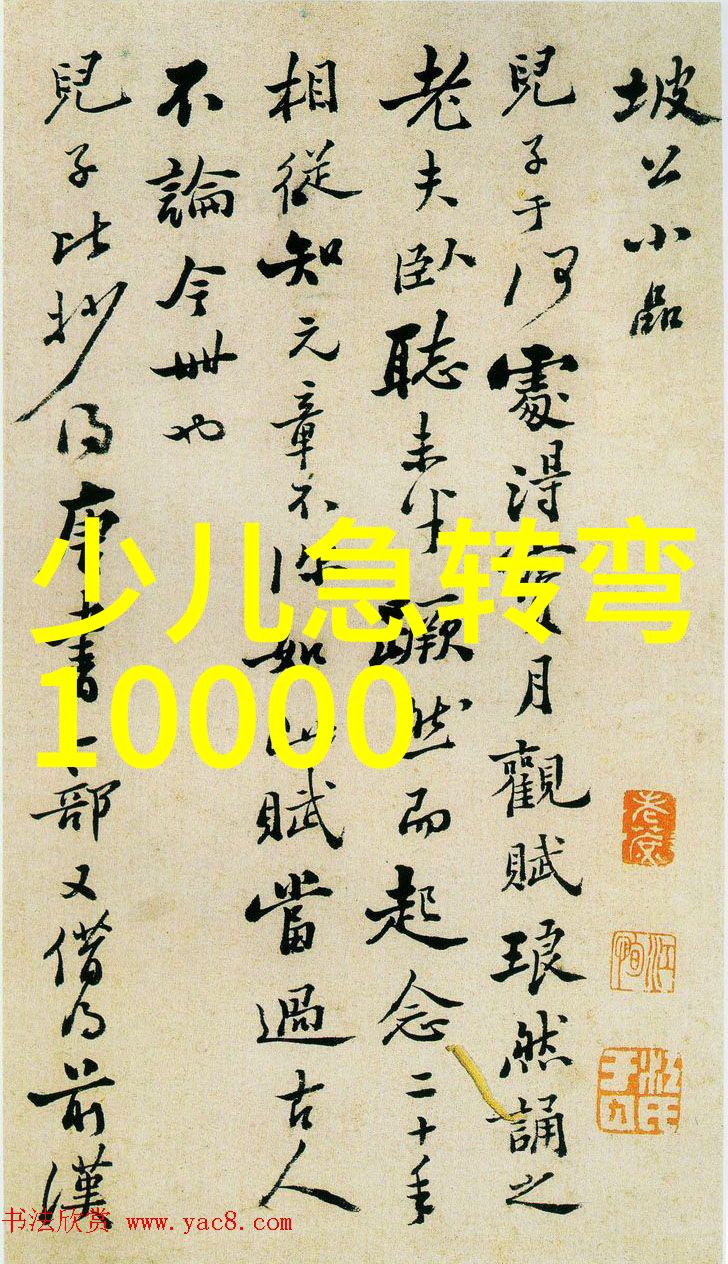 坡公小品
兒子于何處得寶月觀賦琅然誦之
老夫臥聽未半蹶然而起念二十年
相從知元章不深如此賦當過古人
不論今世也
兒子比抄得唐書一部又借得前漢
少儿急转弯
10000
书法欣赏 www.yac8.com